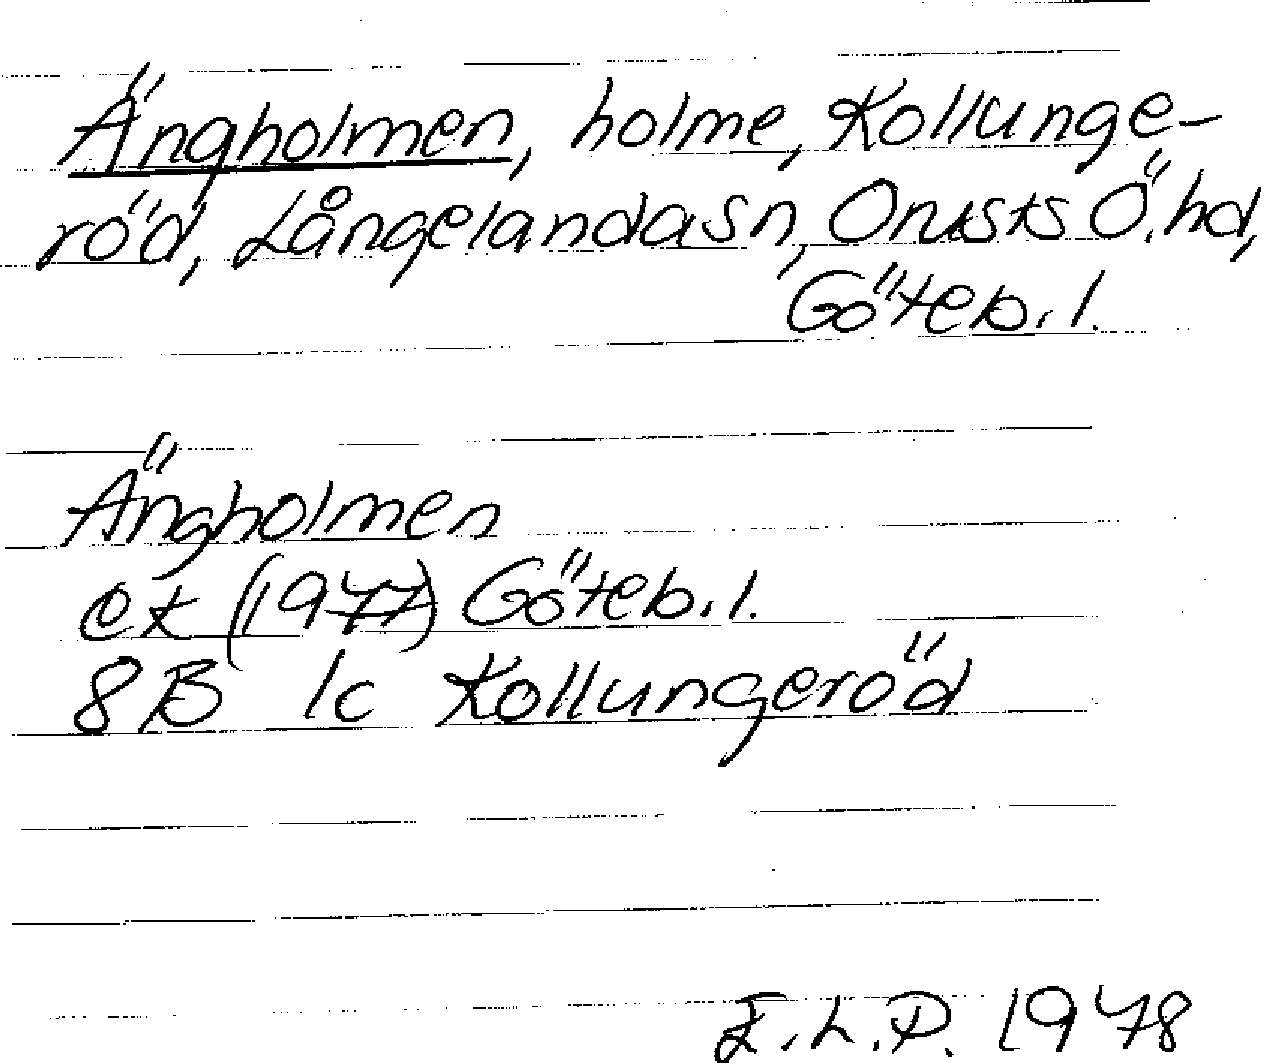 Ängholmen, holme, Kollunge-
röd, Långelandasn, Orusts Ö. hd,
Göteb. l.
Ängholmen
ek (1977) Göteb. l.
8B 1c Kollungeröd
E.L.P. 1978